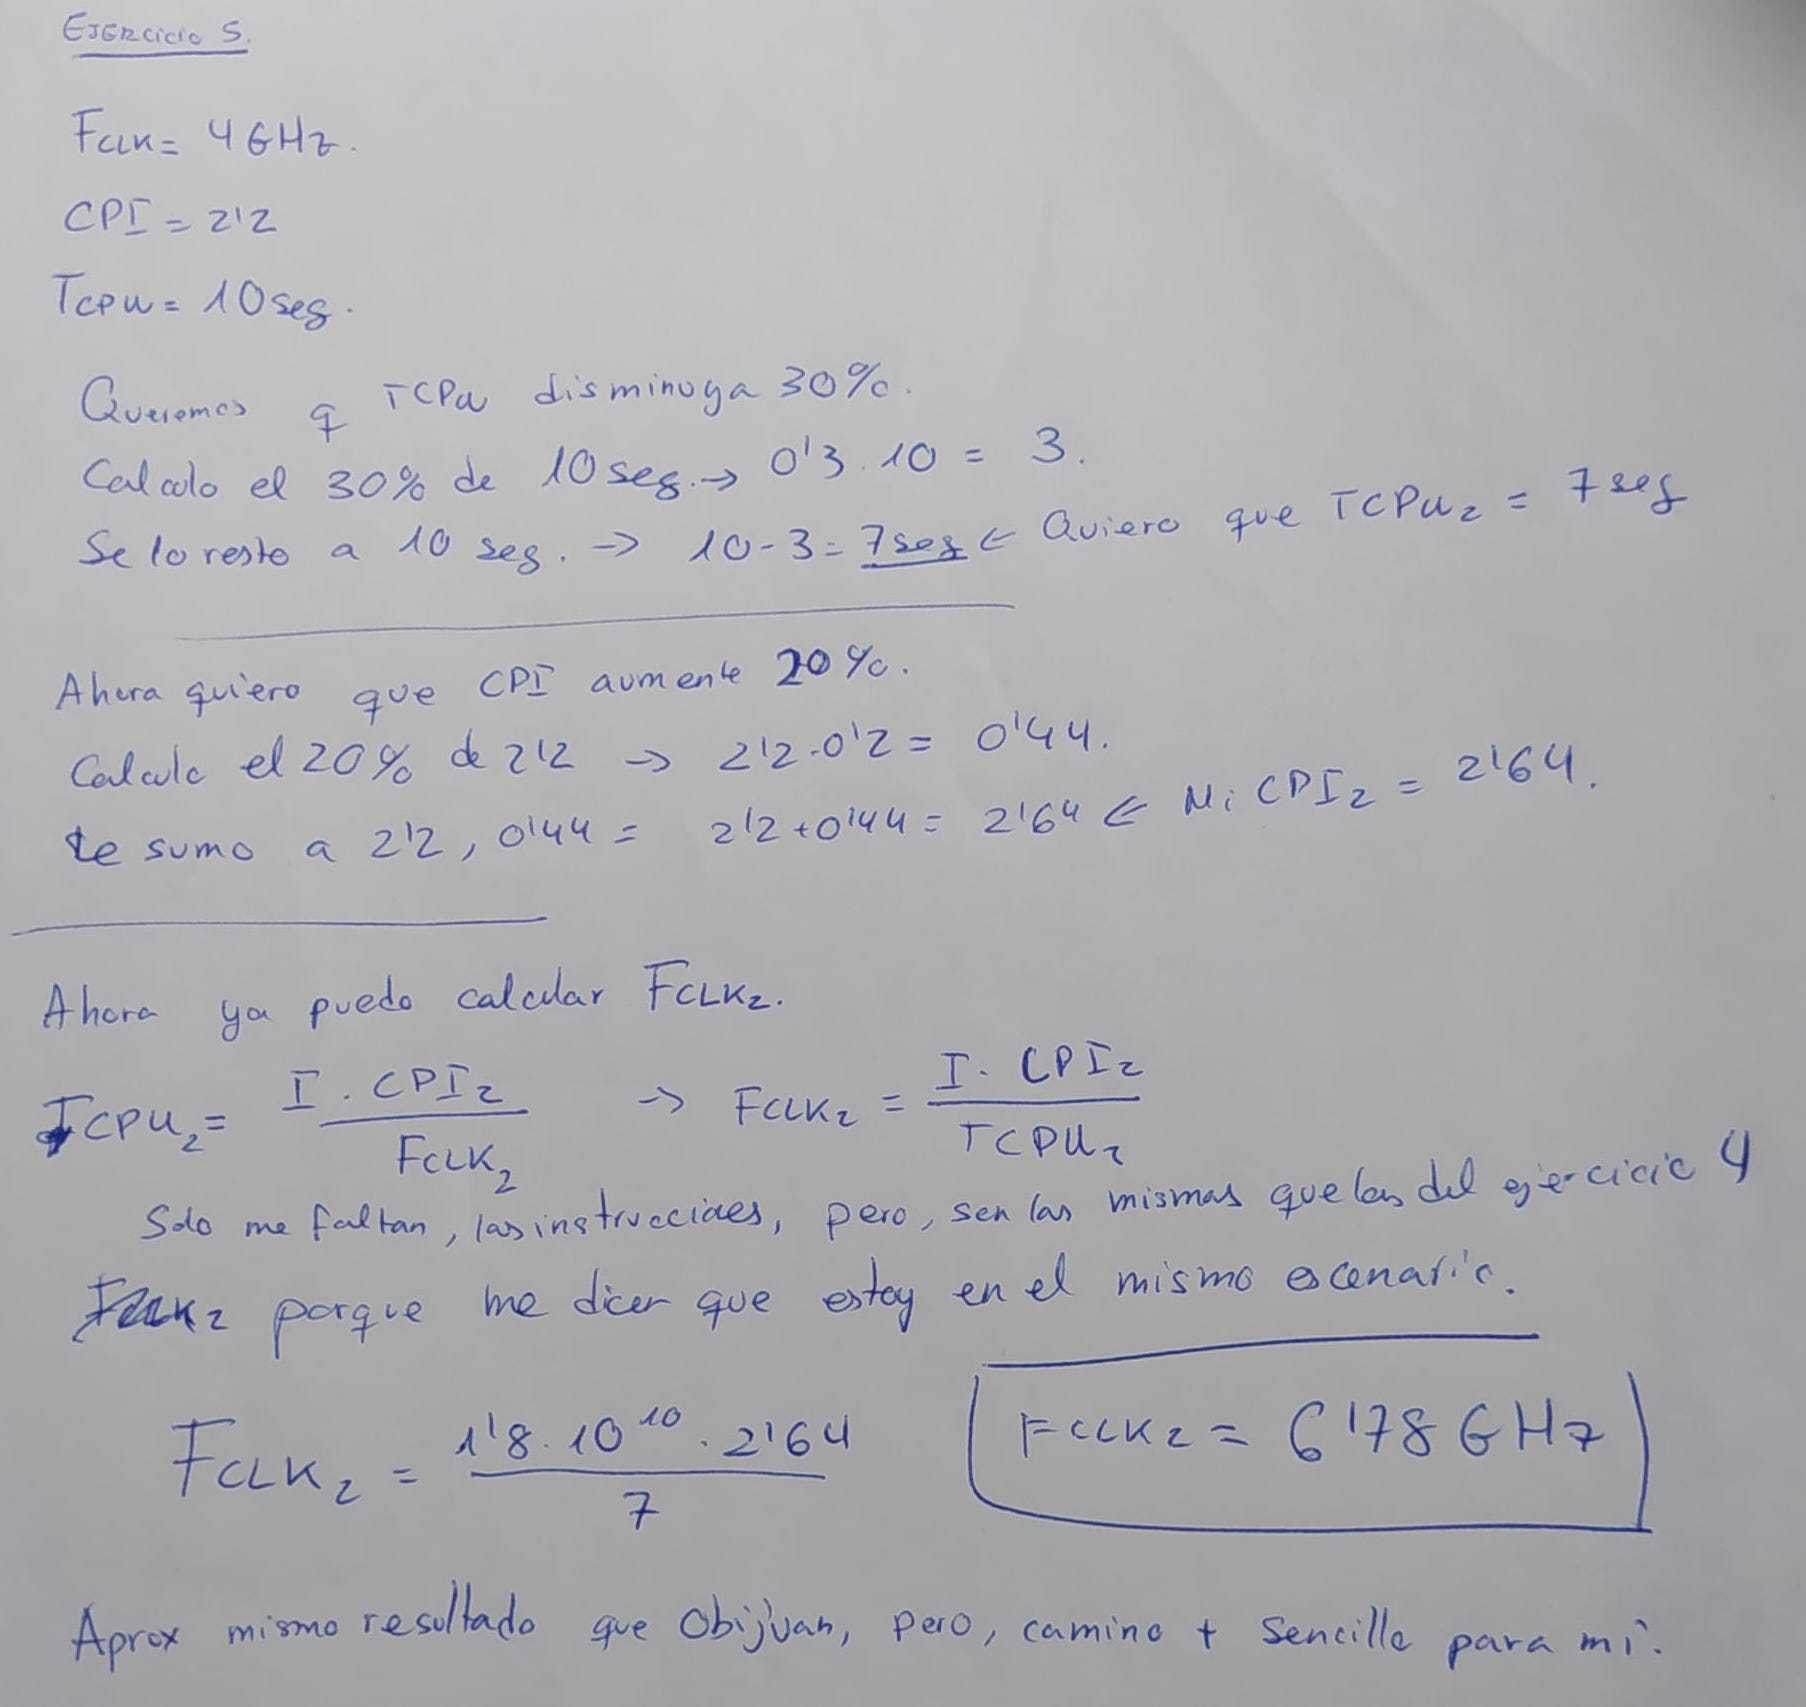 EJERcicio 5.
FCLK= 4GHz.
CPI = 2'2
TCPU= 10seg.
Queremos q TCPU disminuya 30%.
Calculo el 30% de 10seg.→ 0'3.10 = 3.
Se lo resto a 10 seg. → 10-3=7seg ← Quiero que TCPU2 = 7seg
Ahora quiero que CPI aumente 20%.
Calculo el 20% de 2'2 → 2'2.0'2= 0'44.
Le sumo a 2'2, 0'44 = 2'2+0'44= 2'64 ← Mi CPI2 = 2'64.
Ahora ya puedo calcular FCLK2.
TCPU2= I . CPI2 / FCLK2 → FCLK2 = I. CPI2 / TCPU2
Solo me faltan, las instrucciones, pero, son las mismas que las del ejercicio 4
porque me dicen que estoy en el mismo escenario.
FCLK2 = 1'8.10^10 . 2'64 / 7
FCLK2 = 6'78 GHz
Aprox mismo resultado que Obijuan, pero, camino + sencillo para mí.